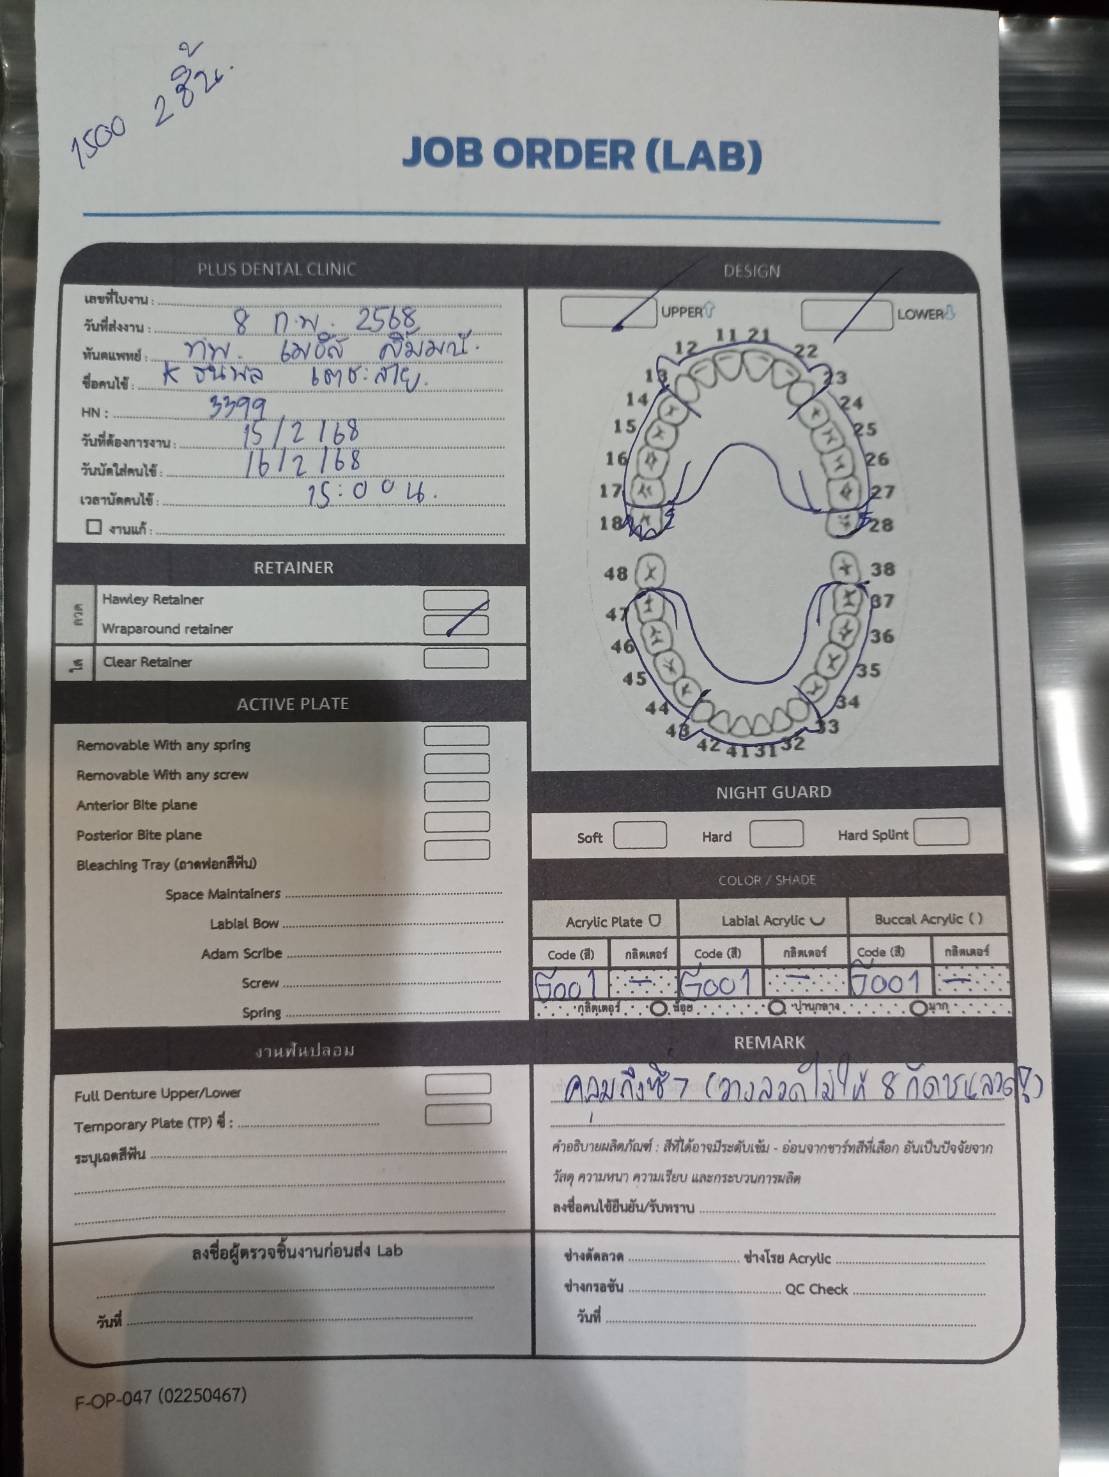 1500 2ชิ้น.
JOB ORDER (LAB)
PLUS DENTAL CLINIC
เลขที่ใบงาน :
วันที่ส่งงาน : 8 ก.พ. 2568
ทันตแพทย์ : ทพ.
ชื่อคนไข้ : K ธนพล
HN : 3399
วันที่ต้องการงาน : 15/2/68
วันนัดใส่คนไข้ : 16/2/68
เวลานัดคนไข้ : 15:00 น.
งานแก้ :
RETAINER
ลวด
Hawley Retainer
Wraparound retainer
ใส
Clear Retainer
ACTIVE PLATE
Removable With any spring
Removable With any screw
Anterior Bite plane
Posterior Bite plane
Bleaching Tray (ถาดฟอกสีฟัน)
Space Maintainers
Labial Bow
Adam Scribe
Screw
Spring
งานฟันปลอม
Full Denture Upper/Lower
Temporary Plate (TP) ซี่ :
ระบุเฉดสีฟัน
ลงชื่อผู้ตรวจชิ้นงานก่อนส่ง Lab
วันที่
DESIGN
UPPER LOWER
11 21
12 22
13 23
14 24
15 25
16 26
17 27
18 28
48 38
47 37
46 36
45 35
44 34
43 33
42 41 31 32
NIGHT GUARD
Soft Hard Hard Splint
COLOR / SHADE
Acrylic Plate Labial Acrylic Buccal Acrylic ( )
Code (สี) กลิตเตอร์ Code (สี) กลิตเตอร์ Code (สี) กลิตเตอร์
G001 - G001 - G001 -
กลิตเตอร์ น้อย ปานกลาง มาก
REMARK
คลุมถึงซี่ 7 (วางลวดไม่ให้ 8 กัดชนลวด)
คำอธิบายผลิตภัณฑ์ : สีที่ได้อาจมีระดับเข้ม - อ่อนจากชาร์ทสีที่เลือก อันเป็นปัจจัยจาก
วัสดุ ความหนา ความเรียบ และกระบวนการผลิต
ลงชื่อคนไข้ยืนยัน/รับทราบ
ช่างดัดลวด ช่างโรย Acrylic
ช่างกรอขัน QC Check
วันที่
F-OP-047 (02250467)